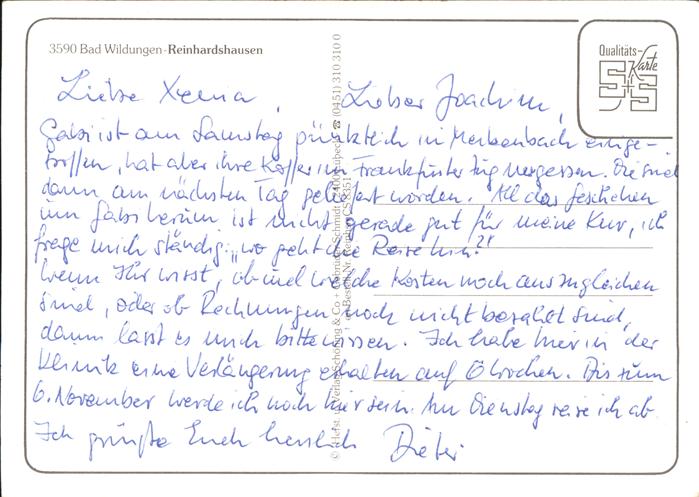 3590 Bad Wildungen-Reinhardshausen
Qualitäts-
Karte
S+S
Liebe Xenia, Lieber Joachim,
Gabi ist am Samstag pünktlich in Merkenbach einge-
troffen, hat aber ihre Koffer im Frankfurter Zug vergessen. Die sind
dann am nächsten Tag geliefert worden. All das Geschehen
um Gabi herum ist nicht gerade gut für meine Kur, ich
frage mich ständig: „wo geht die Reise hin?"
Wenn Ihr wisst, ob und welche Kosten noch auszugleichen
sind, oder ob Rechnungen noch nicht bezahlt sind,
dann lasst es mich bitte wissen. Ich habe hier in der
Klinik eine Verlängerung erhalten auf 6 Wochen. Bis zum
6. November werde ich noch hier sein. Am Dienstag reise ich ab.
Ich grüsse Euch herzlich Dieter
© Verlag Schöning & Co + Gebrüder Schmidt · Lübeck ☎ (0451) 310 310 0